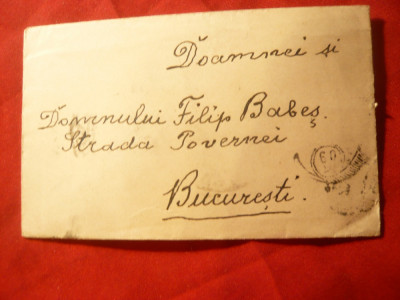 Doamnei și
Domnului Filip Babeș.
Strada Povernei
București.